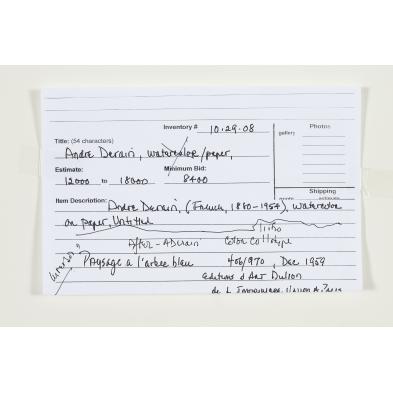 Inventory # 10.29.08
Photos
gallery
Title: (54 characters)
Andre Derain, watercolor/paper,
Estimate: Minimum Bid:
12000 to 18000 8400
Shipping
Item Description: Andre Derain, (French, 1880-1954), watercolor
on paper, Untitled
litho
After - A Derain Color Collotype
Paysage a l'arbre bleu 406/970, Dec 1959
editions d'Art
de L